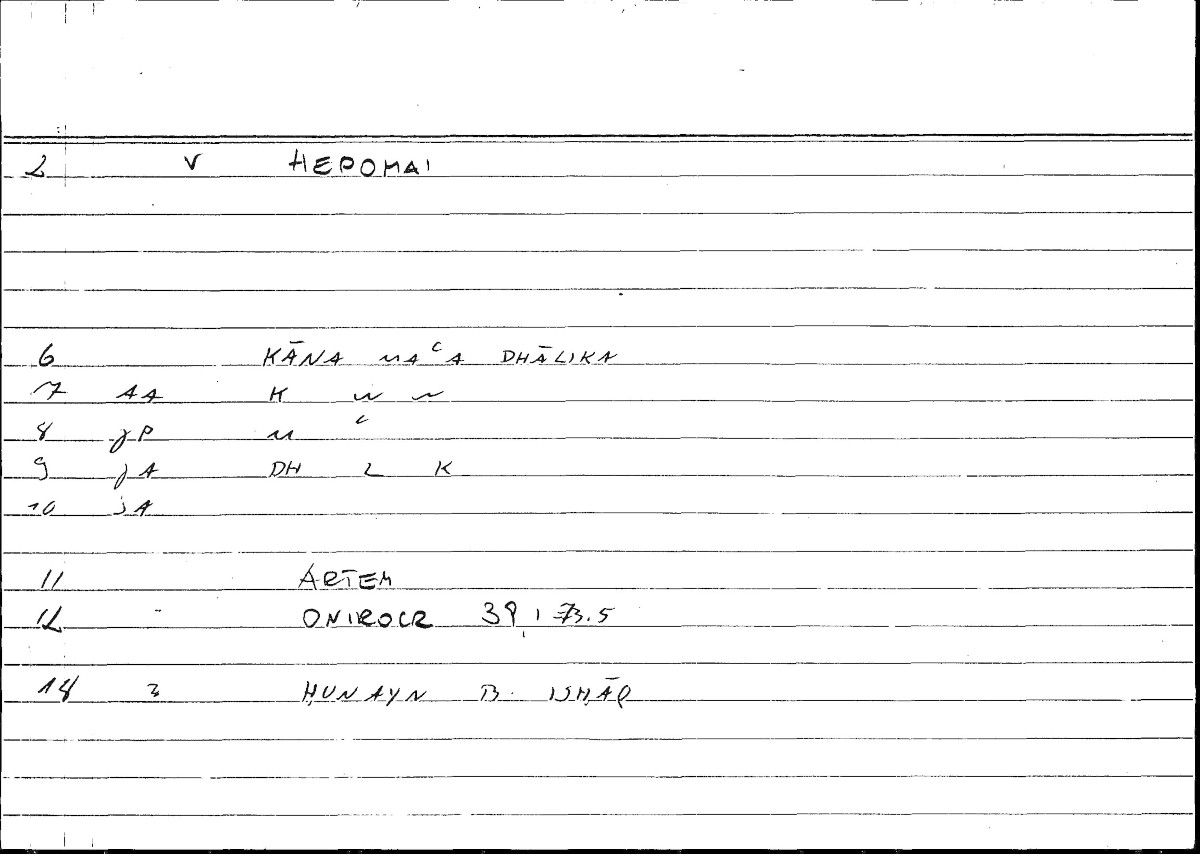 2 V HEPOMAI
6 KĀNA MAʿA DHĀLIKA
7 AA K W N
8 JP M ʿ
9 JA DH L K
10 JA
11 ARTEM
12 ONIROCR 39, 73.5
18 3 ḤUNAYN B. ISḤĀQ